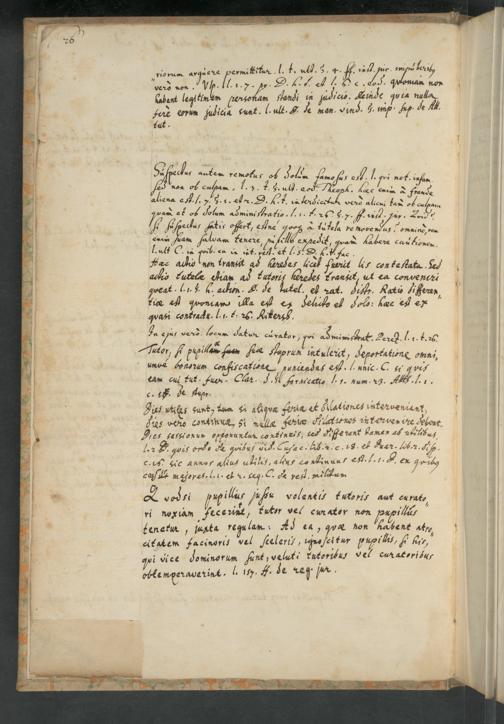 26
riorum arguere permittitur. l. 1. ult. §. 4. ff. inst. jur. impuberib9
vero non. Ulp. ll. 1. 7. pr. D. h. t. et l. 9. c. eod. quoniam non
habent legitimam personam standi in judicio. deinde quia nulla
fere eorum judicia sunt. l. ult. D. de man. vind. §. imp. sup. de Att.
tut.
Suspectus autem remotus ob dolum famosus est. l. qui not. infam
sed non ob culpam. l. 3. t. §. ult. eod. Theoph. haec enim à fraude
aliena est. l. 7. §. 1. D. h. t. interdictum vero alicui tam ob culpam
quam et ob dolum administratio. l. 1. t. 26. §. 7. ff. inst. jur.
Si suspectus satis offert, estne quoq3 à tutela removendus? omnino, rem
enim suam salvam tenere, pupillo expedit, quam habere cautionem.
l. ult C. in quib. ca in int. rest. et l. 5. D. h. t.
Haec actio non transit ad heredes licet fuerit lis contestata. sed
actio tutelae etiam ad tutoris heredes transit, ut ea conveniri
queat. l. 1. §. h. action. D. de tutel. et rat. distr. Ratio differen
tiae est quoniam illa est ex delicto et dolo: haec est ex
quasi contractu. l. 1. t. 26. Rittersh.
In ejus vero locum datur curator, qui administrat. l. 1. t. 26.
Tutor, si pupillam suae stuprum intulerit, deportatione omni„
umve bonorum confiscatione puniendus est. l. unic. C. si quis
eam cui tut. fuer. Clar. §. fornicatio. l. 5. num. 23.
c. de stupr.
Dies utiles sunt, tum si aliquae feriae et dilationes interveniant,
dies vero continuae, si nullae feriae dilationes intervenire debent.
Dies sessionum opponuntur continuis, sed different tamen ab utilibus.
l. 2 D. quis ordo de quibus vid. Cujac. lib. c. 18. et Duar. lib. 2. disp.
c. 16. sic annus alius utilis, alius continuus est. l. 1. D. ex quib9
causis majores. l. 1. et 2. seq. C. de rest. militum
Quodsi pupillus jussu volentis tutoris aut curato„
ri noxiam fecerint, tutor vel curator non pupillus
tenetur, juxta regulam: Ad ea, quae non habent atro„
citatem facinoris vel sceleris, ignoscitur pupillis, si his,
qui vice dominorum sunt, veluti tutoribus vel curatoribus
obtemperaverint. l. 157. ff. de reg. jur.